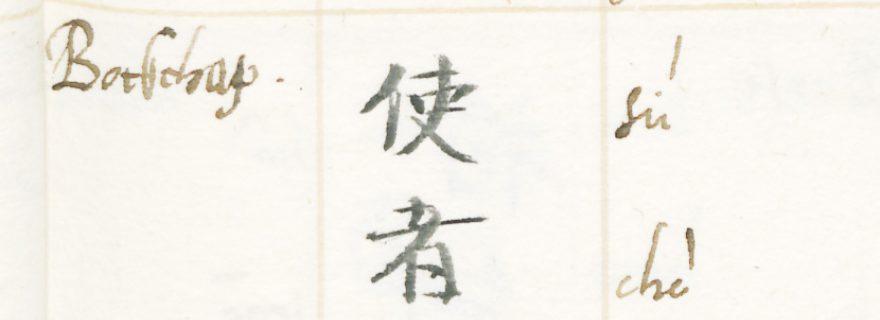 Botschap.
使
sú
者
chè